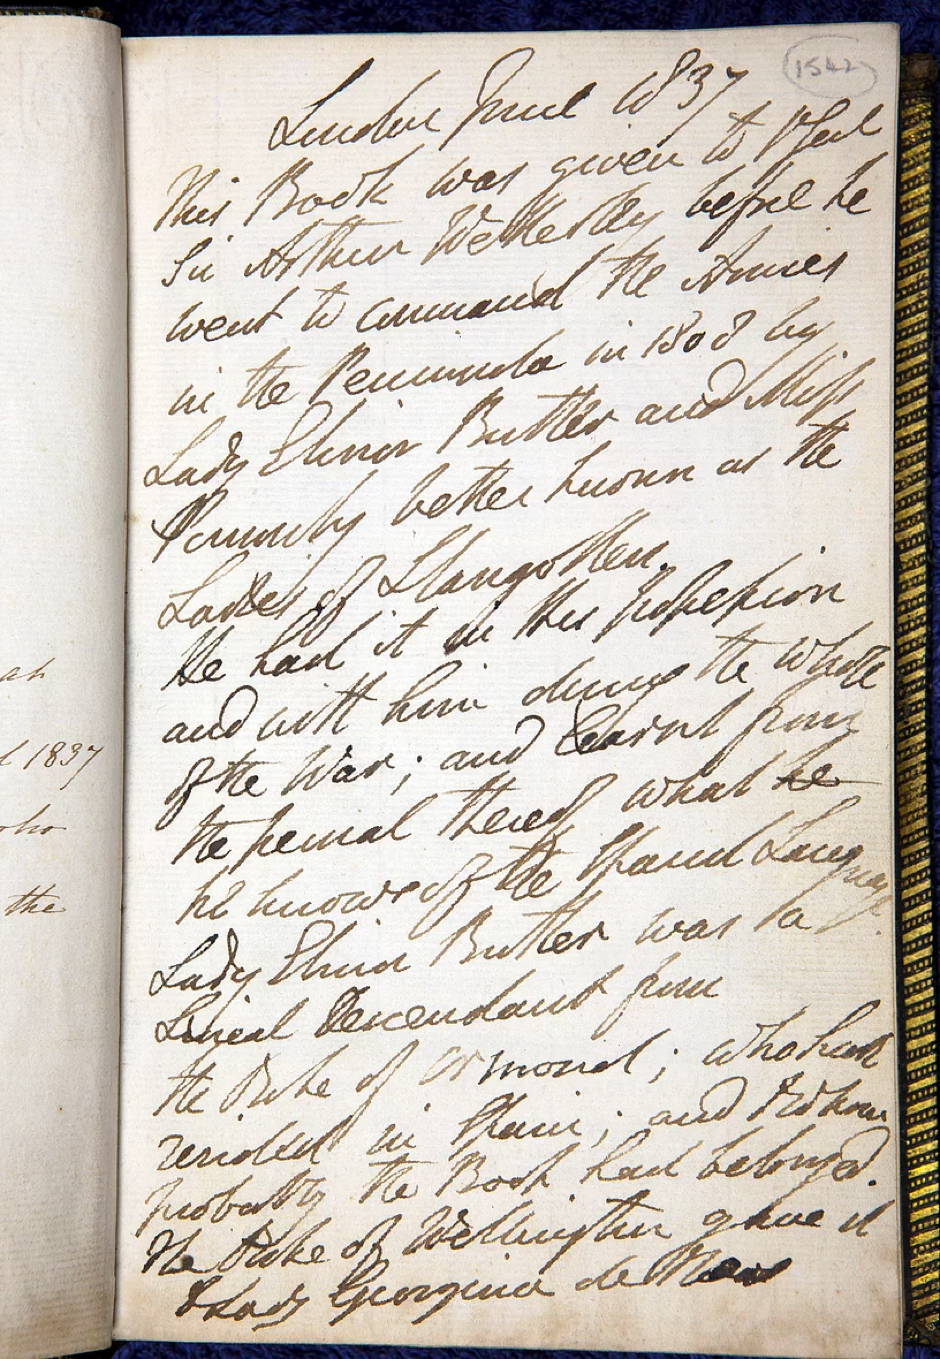 1542
London June 1837
This Book was given to
Sir Arthur Wellesley before he
went to command the Armies
in the Peninsula in 1808 by
Lady Elinor Butler and Miss
Ponsonby better known as the
Ladies of Llangollen.
He had it in his possession
and with him during the whole
of the War; and learnt from
the perusal thereof what he
he knows of the Spanish Language.
Lady Elinor Butler was a
Lineal Descendant from
the Duke of Ormond; who had
resided in Spain; and to whom
probably the Book had belonged.
The Duke of Wellington gave it
to Lady Georgina de Ros
an
1837
who
the